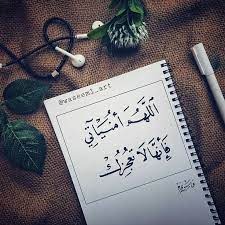 @waseoml_art
اللّهُمَ أُمنْيَاتِي
فَإِنَّهَا لَا تُعْجِزُكَ